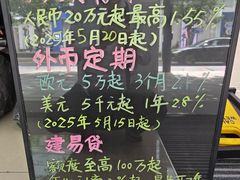 人民币20万元起最高1.55%
(2025年5月20日起)
外币定期
欧元 5万起 3个月2.1%
美元 5千元起 1年2.8%
(2025年5月15日起)
建易贷
额度至高100万起